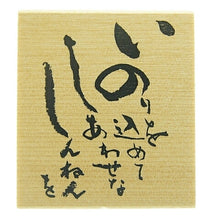 いのりを
込めて
しあわせな
しんねんを